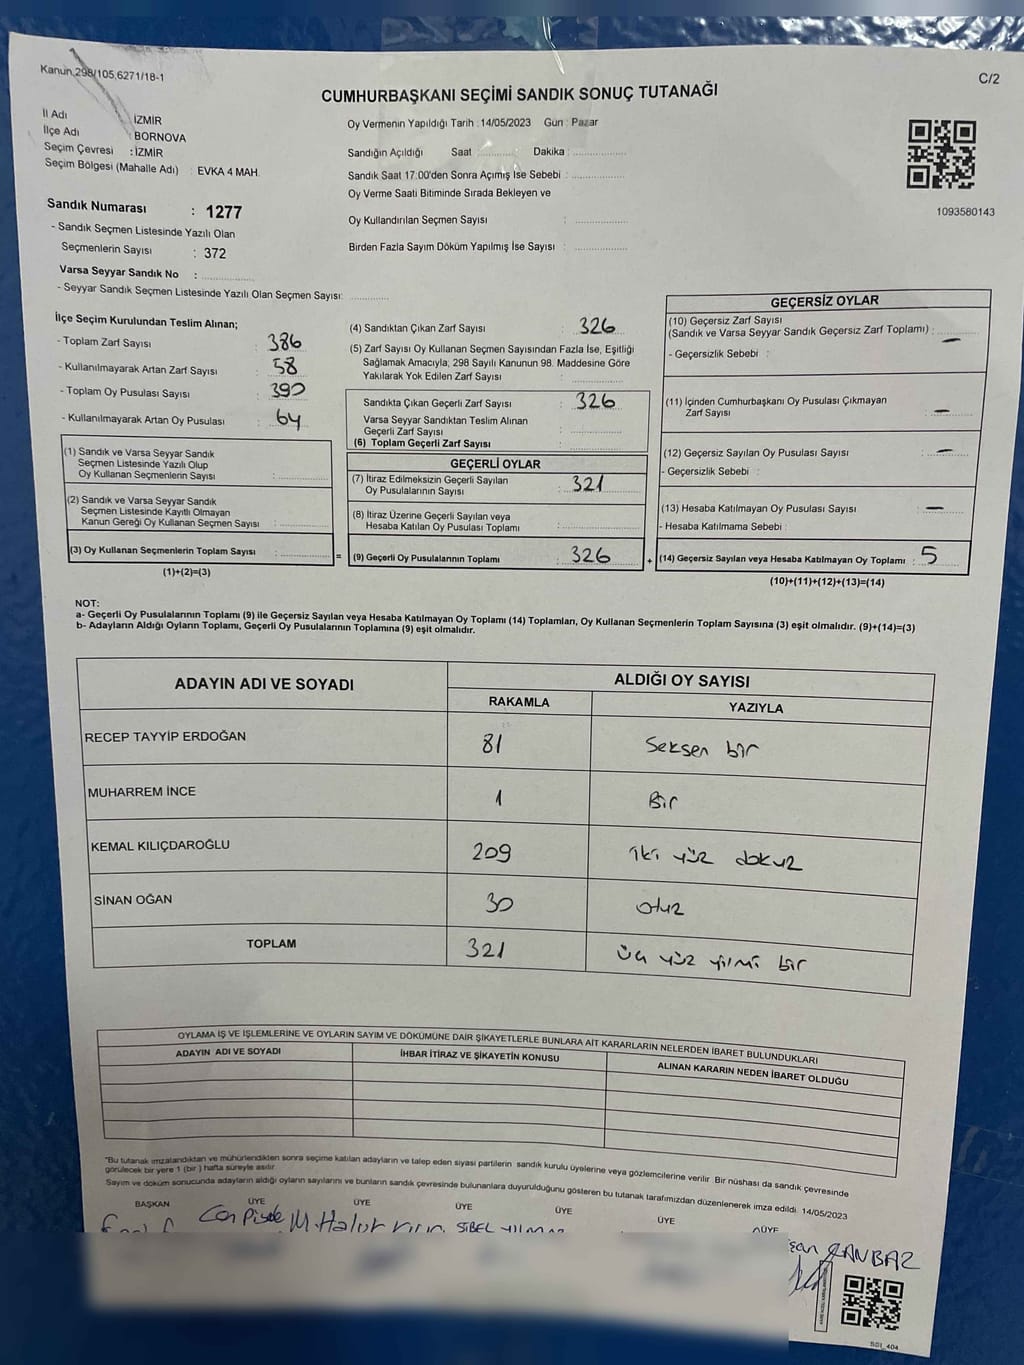 Kanun,298/105,6271/18-1
C/2
CUMHURBAŞKANI SEÇİMİ SANDIK SONUÇ TUTANAĞI
İl Adı : İZMİR
İlçe Adı : BORNOVA
Seçim Çevresi : İZMİR
Seçim Bölgesi (Mahalle Adı) : EVKA 4 MAH.
Sandık Numarası : 1277
- Sandık Seçmen Listesinde Yazılı Olan
Seçmenlerin Sayısı : 372
Varsa Seyyar Sandık No :
- Seyyar Sandık Seçmen Listesinde Yazılı Olan Seçmen Sayısı:
Oy Vermenin Yapıldığı Tarih : 14/05/2023 Gün : Pazar
Sandığın Açıldığı Saat : Dakika :
Sandık Saat 17:00'den Sonra Açımış İse Sebebi :
Oy Verme Saati Bitiminde Sırada Bekleyen ve
Oy Kullandırılan Seçmen Sayısı :
Birden Fazla Sayım Döküm Yapılmış İse Sayısı :
1093580143
İlçe Seçim Kurulundan Teslim Alınan;
- Toplam Zarf Sayısı : 386
- Kullanılmayarak Artan Zarf Sayısı : 58
- Toplam Oy Pusulası Sayısı : 390
- Kullanılmayarak Artan Oy Pusulası : 64
(1) Sandık ve Varsa Seyyar Sandık
Seçmen Listesinde Yazılı Olup
Oy Kullanan Seçmenlerin Sayısı :
(2) Sandık ve Varsa Seyyar Sandık
Seçmen Listesinde Kayıtlı Olmayan
Kanun Gereği Oy Kullanan Seçmen Sayısı :
(3) Oy Kullanan Seçmenlerin Toplam Sayısı : =
(1)+(2)=(3)
(4) Sandıktan Çıkan Zarf Sayısı : 326
(5) Zarf Sayısı Oy Kullanan Seçmen Sayısından Fazla İse, Eşitliği
Sağlamak Amacıyla, 298 Sayılı Kanunun 98. Maddesine Göre
Yakılarak Yok Edilen Zarf Sayısı :
Sandıkta Çıkan Geçerli Zarf Sayısı : 326
Varsa Seyyar Sandıktan Teslim Alınan
Geçerli Zarf Sayısı :
(6) Toplam Geçerli Zarf Sayısı :
GEÇERLİ OYLAR
(7) İtiraz Edilmeksizin Geçerli Sayılan
Oy Pusulalarının Sayısı : 321
(8) İtiraz Üzerine Geçerli Sayılan veya
Hesaba Katılan Oy Pusulası Toplamı :
(9) Geçerli Oy Pusulalarının Toplamı : 326 +
GEÇERSİZ OYLAR
(10) Geçersiz Zarf Sayısı
(Sandık ve Varsa Seyyar Sandık Geçersiz Zarf Toplamı) : –
- Geçersizlik Sebebi :
(11) İçinden Cumhurbaşkanı Oy Pusulası Çıkmayan
Zarf Sayısı : –
(12) Geçersiz Sayılan Oy Pusulası Sayısı : –
- Geçersizlik Sebebi :
(13) Hesaba Katılmayan Oy Pusulası Sayısı : –
- Hesaba Katılmama Sebebi :
(14) Geçersiz Sayılan veya Hesaba Katılmayan Oy Toplamı : 5
(10)+(11)+(12)+(13)=(14)
NOT:
a- Geçerli Oy Pusulalarının Toplamı (9) ile Geçersiz Sayılan veya Hesaba Katılmayan Oy Toplamı (14) Toplamları, Oy Kullanan Seçmenlerin Toplam Sayısına (3) eşit olmalıdır. (9)+(14)=(3)
b- Adayların Aldığı Oyların Toplamı, Geçerli Oy Pusulalarının Toplamına (9) eşit olmalıdır.
ADAYIN ADI VE SOYADI
ALDIĞI OY SAYISI
RAKAMLA YAZIYLA
RECEP TAYYİP ERDOĞAN 81 seksen bir
MUHARREM İNCE 1 Bir
KEMAL KILIÇDAROĞLU 209 iki yüz dokuz
SİNAN OĞAN 30 otuz
TOPLAM 321 üç yüz yirmi bir
OYLAMA İŞ VE İŞLEMLERİNE VE OYLARIN SAYIM VE DÖKÜMÜNE DAİR ŞİKAYETLERLE BUNLARA AİT KARARLARIN NELERDEN İBARET BULUNDUKLARI
ADAYIN ADI VE SOYADI İHBAR İTİRAZ VE ŞİKAYETİN KONUSU ALINAN KARARIN NEDEN İBARET OLDUĞU
*Bu tutanak imzalandıktan ve mühürlendikten sonra seçime katılan adayların ve talep eden siyasi partilerin sandık kurulu üyelerine veya gözlemcilerine verilir. Bir nüshası da sandık çevresinde
görülecek bir yere 1 (bir) hafta süreyle asılır.
Sayım ve döküm sonucunda adayların aldığı oyların sayılarını ve bunların sandık çevresinde bulunanlara duyurulduğunu gösteren bu tutanak tarafımızdan düzenlenerek imza edildi. 14/05/2023
BAŞKAN ÜYE ÜYE ÜYE ÜYE ÜYE ÜYE
SİBEL YILMAZ
CANBAZ